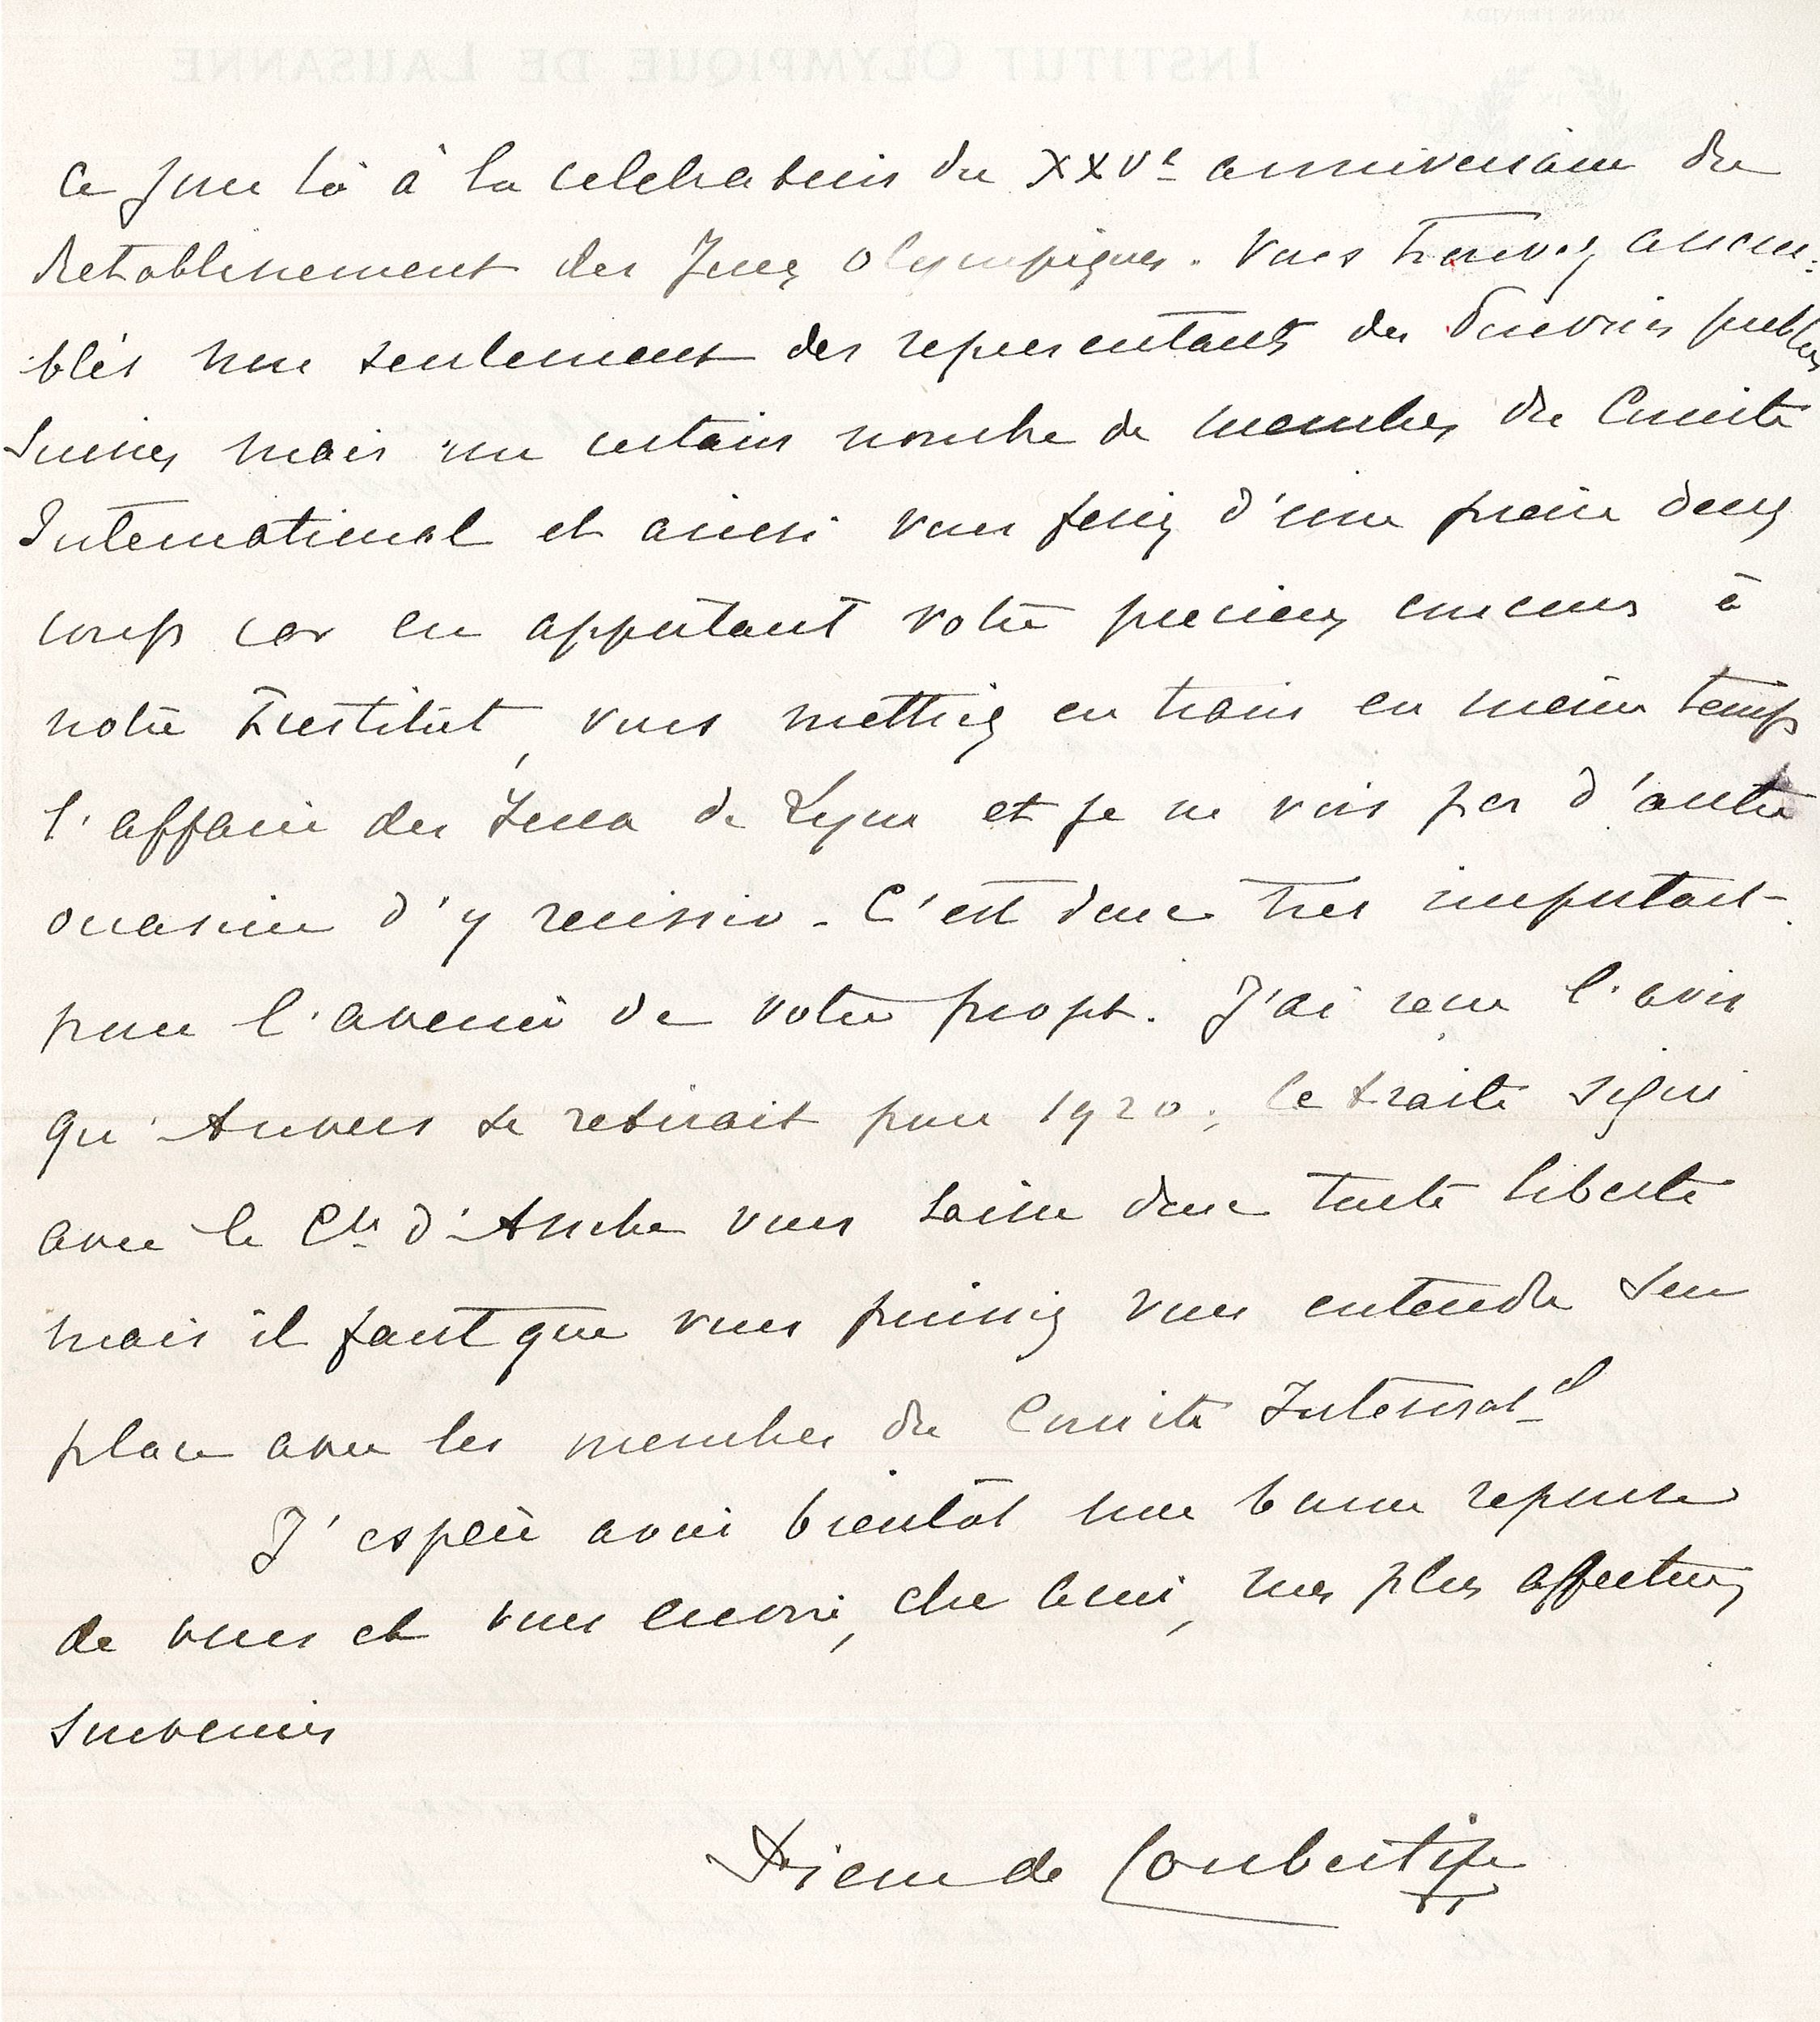 ce jour là à la celebration du XXVe anniversaire du
Retablissement des Jeux Olympiques. Vous trouvez assem-
blés non seulement des representants des Pouvoirs publics
Suisses mais un certain nombre de membres du Comité
International et ainsi vous feriez d'une pierre deux
coups car en apportant votre precieux concours à
notre Institut, vous mettriez en train en même temps
l'affaire des Jeux de Lyon et je ne vois pas d'autre
occasion d'y reussir. C'est donc tres important
pour l'avenir de votre projet. J'ai reçu l'avis
qu'Anvers se retirait pour 1920; le traité signé
avec le Cte d'Assche vous laisse donc toute liberté
mais il faut que vous puissiez vous entendre sur
place avec les membres du Comité Internatal
J'espère avoir bientôt une bonne reponse
de vous et vous envoie, cher ami, mes plus affectueux
souvenirs
Pierre de Coubertin
INSTITUT OLYMPIQUE DE LAUSANNE